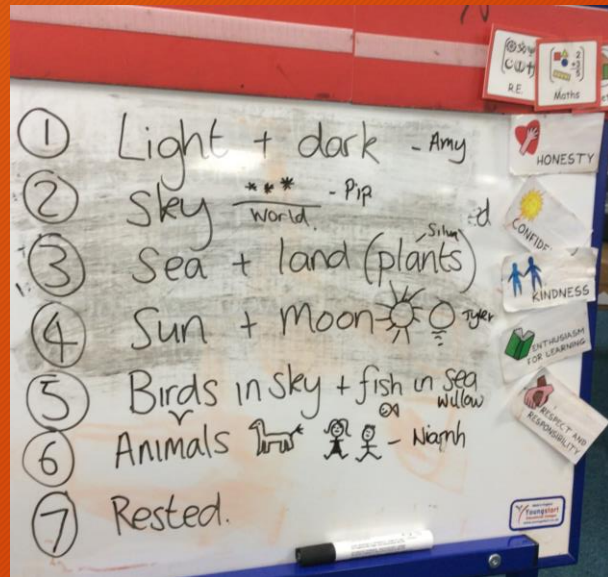 R.E.
Maths
① Light + dark - Amy
② Sky *** - Pip
World.
③ Sea + land (plants)
④ Sun + Moon Tyler
⑤ Birds in sky + fish in sea
willow
⑥ Animals - Niamh
⑦ Rested.
HONESTY
CONFIDE
KINDNESS
ENTHUSIASM
FOR LEARNING
RESPECT AND
RESPONSIBILITY
Youngstart